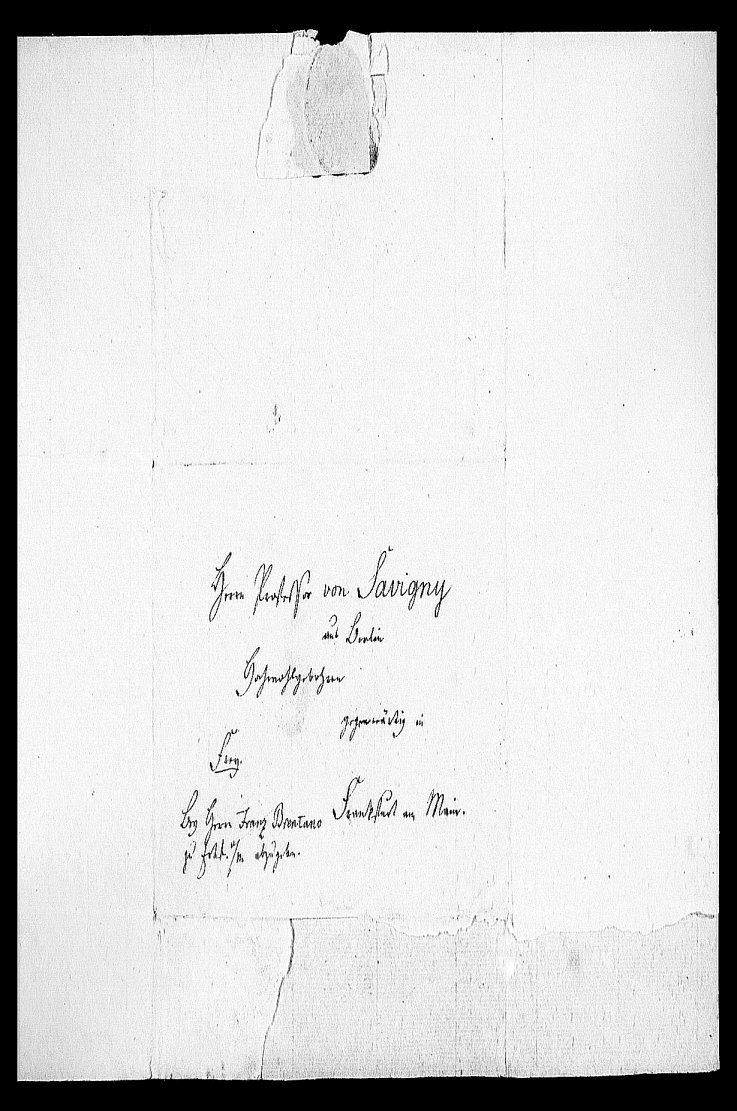 Herrn Professor von Savigny
aus Berlin
Hochwohlgebohren
gegenwärtig in
Frey.
Frankfurt am Main.
Bey Herrn Franz Brentano
zu Frkf. a/m abzugeben.